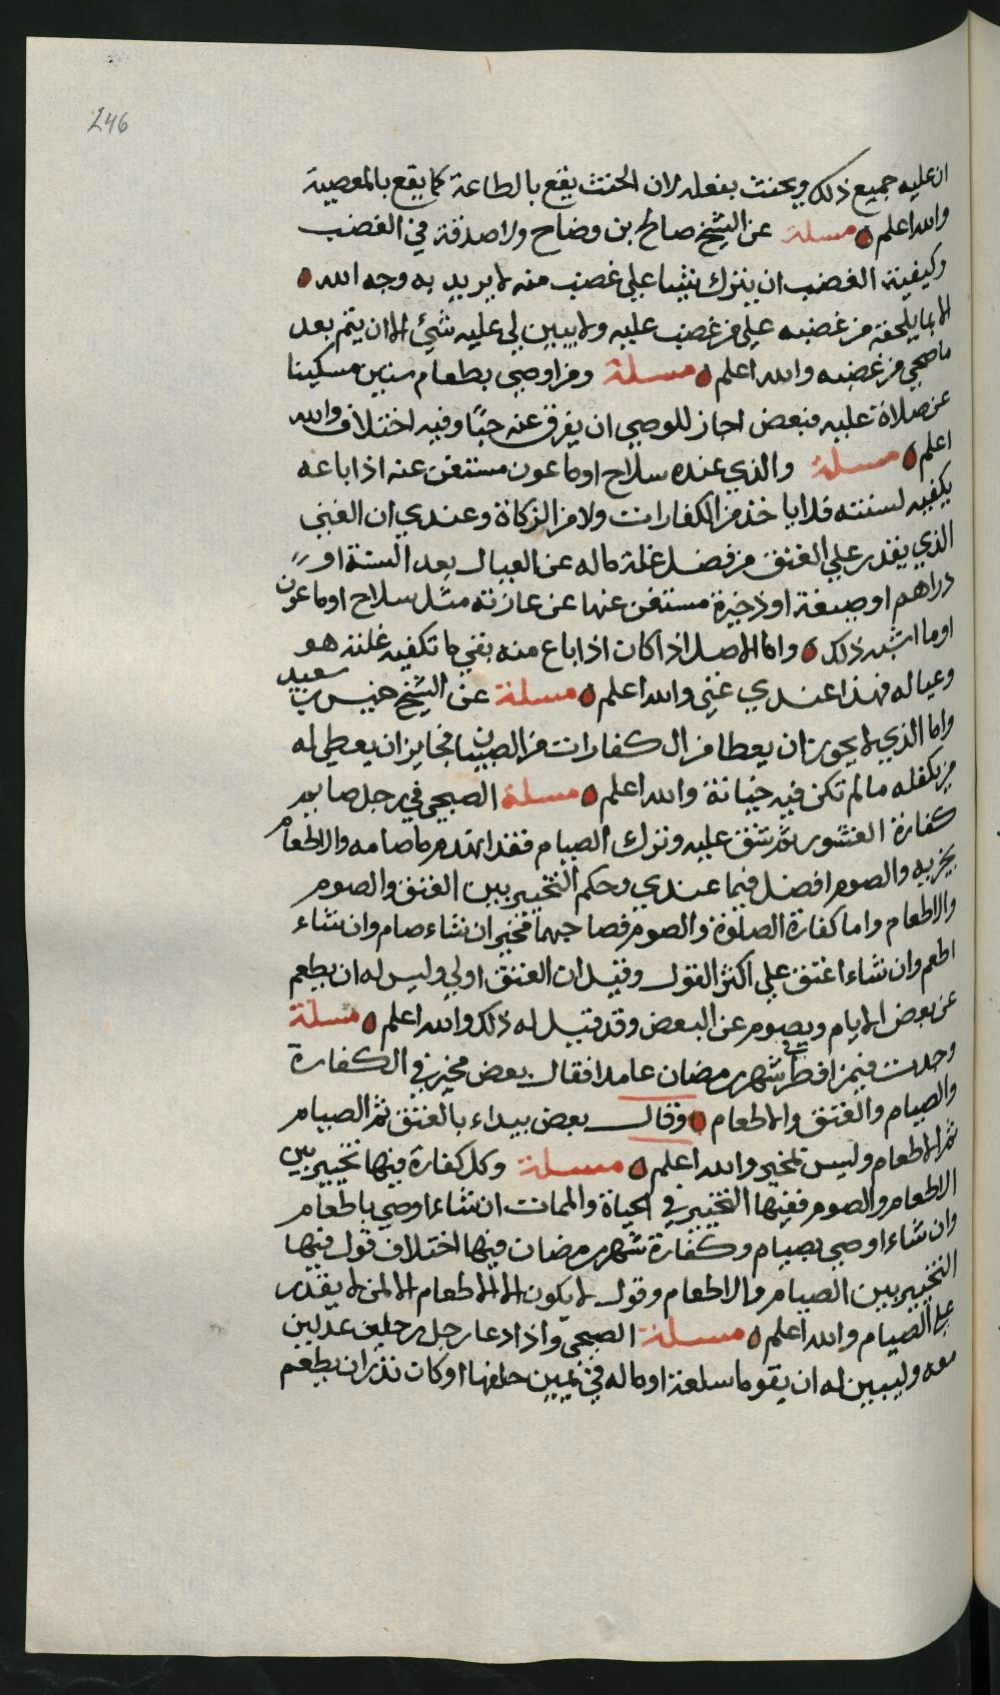 246
ان عليه جميع ذلك ويحنث بفعله لان الحنث يقع بالطاعة كما يقع بالمعصية
والله اعلم مسلة عن الشيخ صالح بن وضاح ولا صدقة في الغضب
وكيفية الغضب ان يترك شيا على غضب منه لا يريد به وجه الله
الا بما يلحقه من غضبه على من غضب عليه ولا يبين لي عليه شئ الا ان يتم بعد
ما صحي من غضبه والله اعلم مسلة ومن اوصى بطعام ستين مسكينا
عن صلاة عليه فبعض اجاز للوصي ان يفرق عنه حبًا وفيه اختلاف والله
اعلم مسلة والذي عنده سلاح او ماعون مستغن عنه اذا باعه
يكفيه لسنته فلا ياخذ من الكفارات ولا من الزكاة وعندي ان الغني
الذي يقدر على العتق من فضل غلة ماله عن العيال بعد السنة او
دراهم او صيغة او ذخيرة مستغن عنها عن عازته مثل سلاح او ماعون
او ما اشبه ذلك واما الاصل اذا كان اذا باع منه بقي ما تكفيه غلته هو
وعياله فهذا عندي غني والله اعلم مسلة عن الشيخ خميس بن سعيد
واما الذي لا يجوز ان يعطا من الكفارات من الصبيان فجايز ان يعطى له
من يكفله ما لم تكن فيه خيانة والله اعلم مسلة الصبحي في رجل صا بد
كفارة العشور ثم شق عليه وترك الصيام فقد انهدم ما صامه والاطعام
يجزيه والصوم افضل فيما عندي وحكم التخيير بين العتق والصوم
والاطعام واما كفارة الصلوة والصوم فصاحبهما مخير ان شاء صام وان شاء
اطعم وان شاء اعتق على اكثر القول وقيل ان العتق اولى وليس له ان يطعم
عن بعض الايام ويصوم عن البعض وقد قيل له ذلك والله اعلم مسلة
وجدت فيمن افطر في شهر رمضان عامدا فقال بعض مخير في الكفارة
والصيام والعتق والاطعام وقال بعض يبداء بالعتق ثم الصيام
ثم الاطعام وليس تخير والله اعلم مسلة وكل كفارة فيها تخيير بين
الاطعام والصوم ففيها التخيير في الحياة والممات ان شاء اوصى باطعام
وان شاء اوصى بصيام وكفارة شهر رمضان فيها اختلاف قول فيها
التخيير بين الصيام والاطعام وقول لا يكون الا الاطعام الا لمن لا يقدر
على الصيام والله اعلم مسلة الصبحي واذا دعا رجل رجلين عدلين
معه وليبين له ان يقوما سلعة او ماله في يمين حلفها او كان نذر ان يطعم